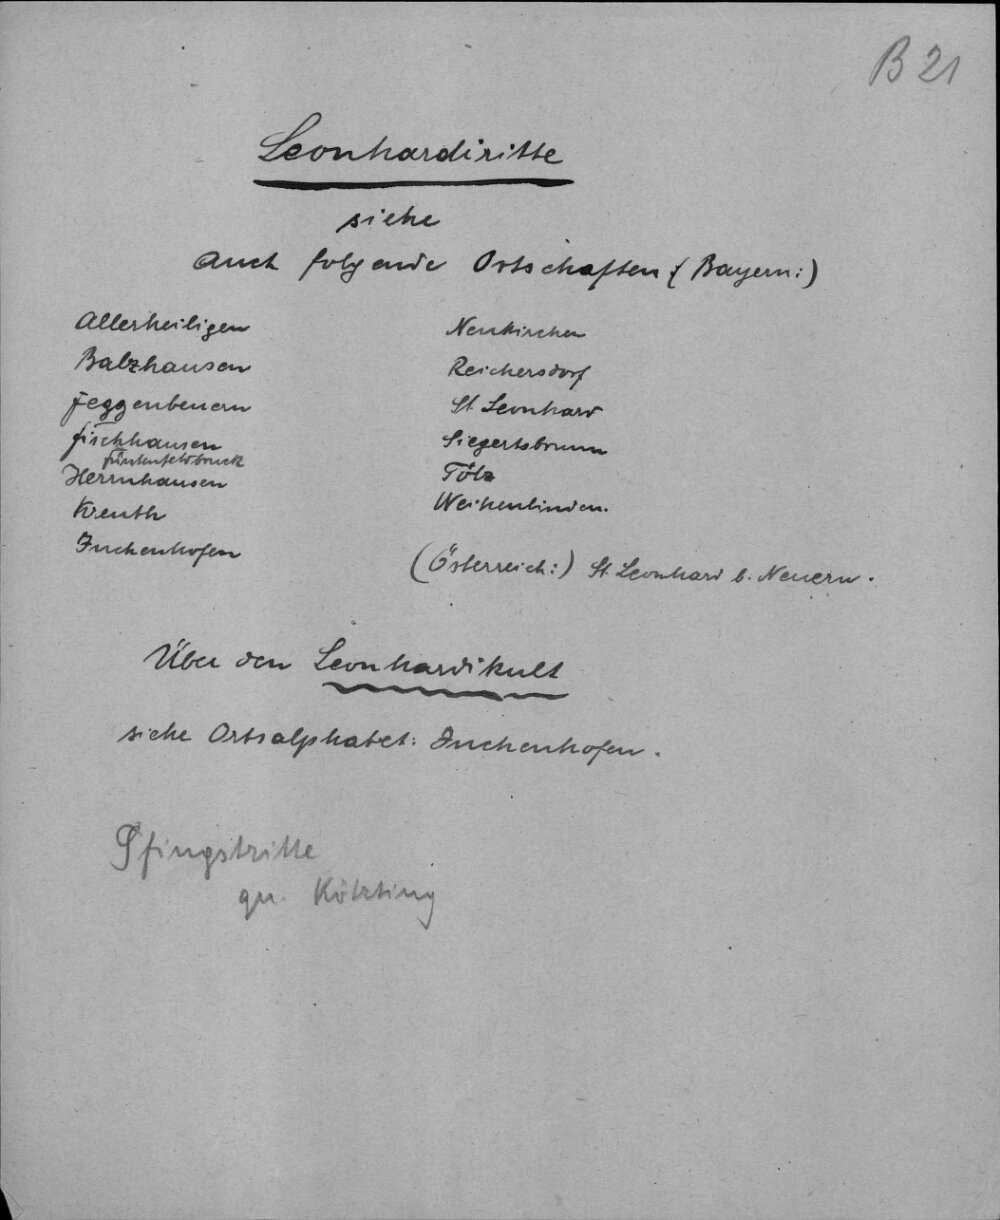 B 21
Leonhardiritte
siehe
Auch folgende Ortschaften (Bayern:)
Allerheiligen
Balzhausen
Feggenbeuern
Fischhausen
Fürstenfeldbruck
Herrnhausen
Kreuth
Inchenhofen
Neukirchen
Reichersdorf
St Leonhard
Siegertsbrunn
Tölz
Weihenlinden.
(Österreich:) St. Leonhard b. Neuern.
Über den Leonhardikult
siehe Ortsalphabet: Inchenhofen.
Pfingstritte
Kötzting